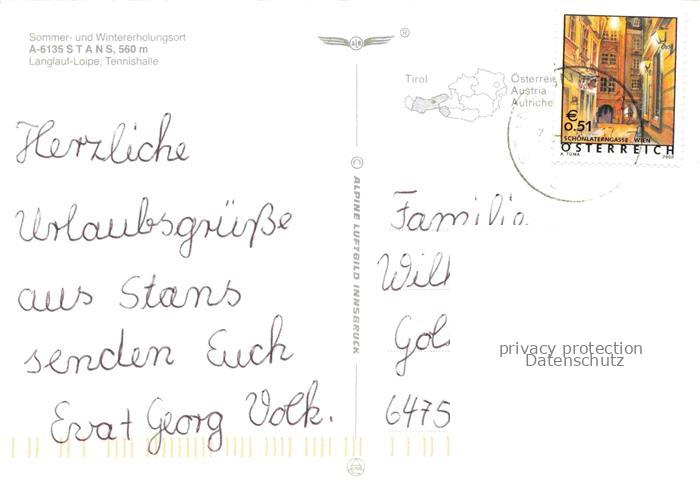 Sommer- und Wintererholungsort
A-6135 STANS, 560 m
Langlauf-Loipe; Tennishalle
Herzliche
Urlaubsgrüße
aus Stans
senden Euch
Eva + Georg Volk.
© ALPINE LUFTBILD INNSBRUCK
®
Tirol
Österrei
Austria
Autriche
€
0.51
SCHÖNLATERNGASSE · WIEN
ÖSTERREICH
A. TUMA 2002
Familie
Wil
Gol
6475
privacy protection
Datenschutz